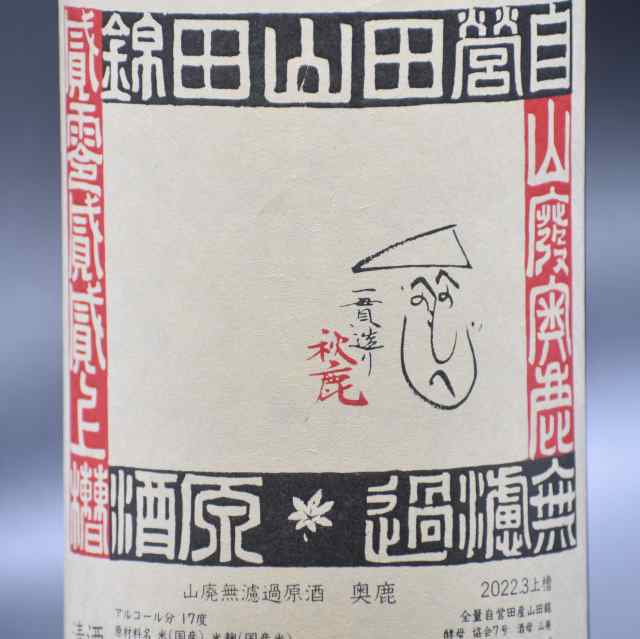 自営田山田錦
山廢奥鹿
無濾過原酒
貳零貳貳上槽
一貫造り
秋鹿
へのへのもへじ
山廃無濾過原酒 奥鹿
2022.3上槽
アルコール分 17度
原材料名 米(国産) 米麹(国産米)
全量自営田産山田錦
酵母 協会7号 酒母 山廃
清酒